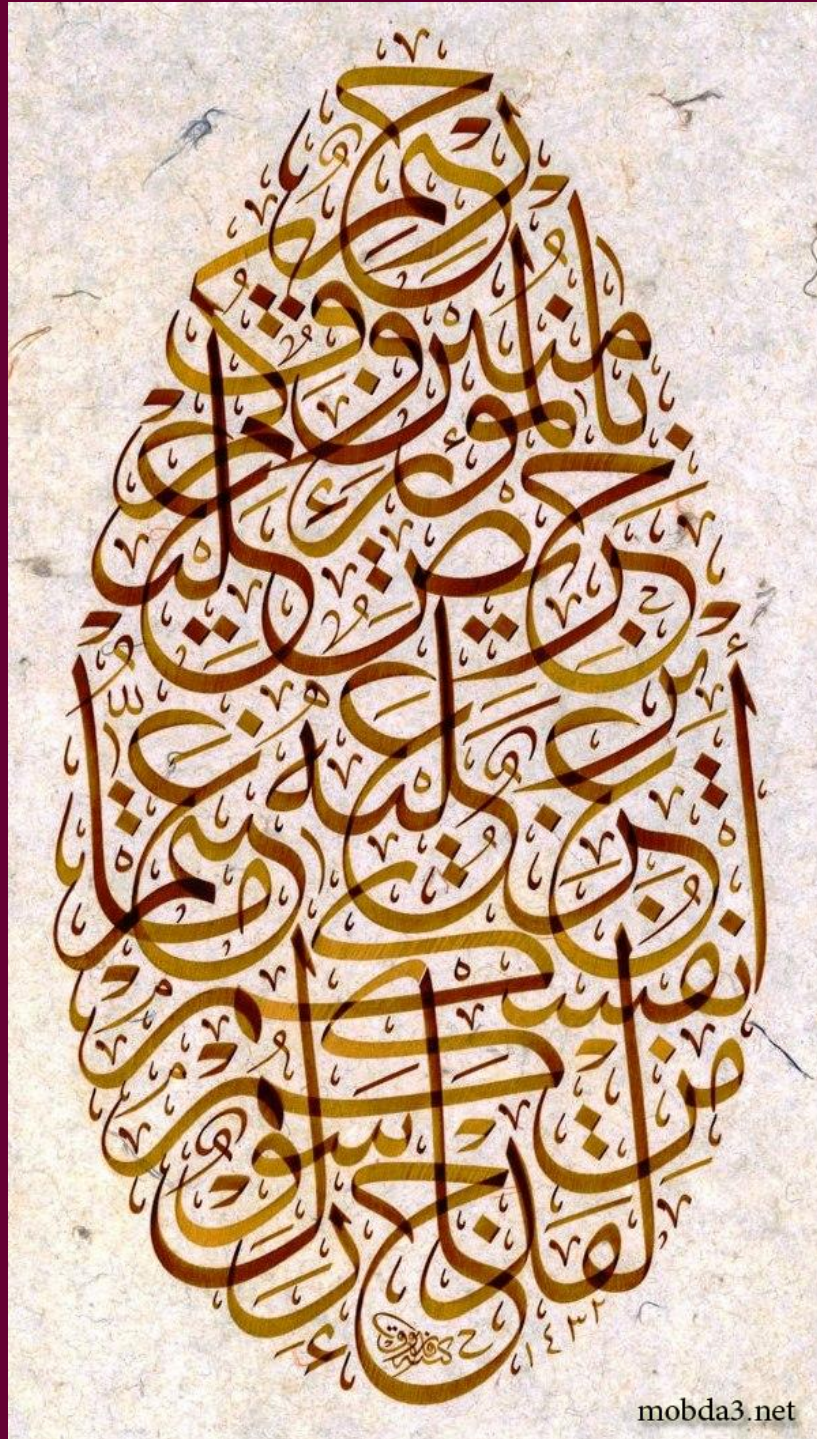 لقد جاءكم رسول
من أنفسكم
عزيز عليه ما عنتم
حريص عليكم
بالمؤمنين رءوف
رحيم
كتبه فاروق
١٤٣٢
mobda3.net